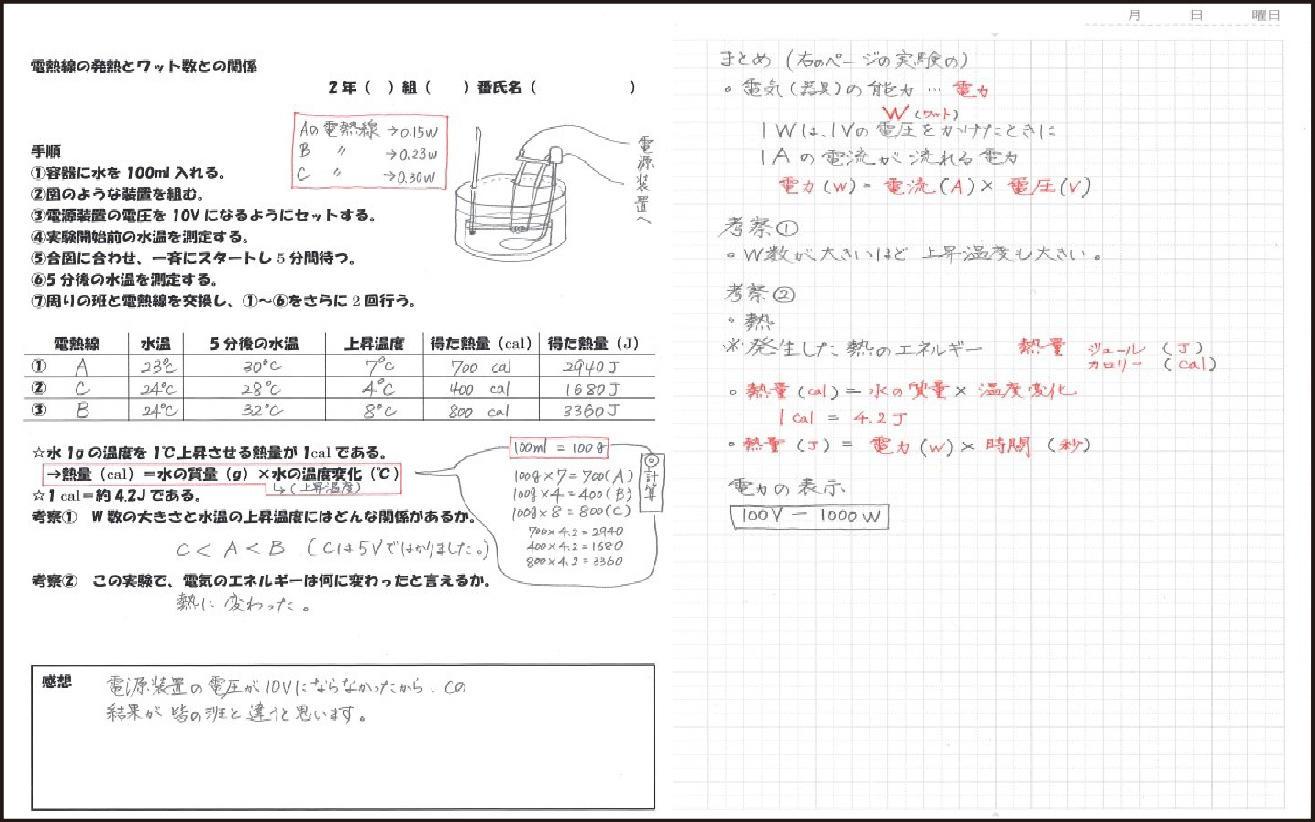 電熱線の発熱とワット数との関係
2年（　）組（　　）番氏名（　　　　　　　）
Aの電熱線 →0.15W
B 〃 →0.23W
C 〃 →0.30W
電源装置へ
手順
①容器に水を100ml入れる。
②図のような装置を組む。
③電源装置の電圧を10Vになるようにセットする。
④実験開始前の水温を測定する。
⑤合図に合わせ、一斉にスタートし5分間待つ。
⑥5分後の水温を測定する。
⑦周りの班と電熱線を交換し、①～⑥をさらに2回行う。
電熱線 水温 5分後の水温 上昇温度 得た熱量（cal） 得た熱量（J）
① A 23℃ 30℃ 7℃ 700 cal 2940J
② C 24℃ 28℃ 4℃ 400 cal 1680J
③ B 24℃ 32℃ 8℃ 800 cal 3360J
☆水1gの温度を1℃上昇させる熱量が1calである。
→熱量（cal）＝水の質量（g）×水の温度変化（℃）
↳（上昇温度）
☆1cal＝約4.2Jである。
100ml = 100g
◎計算
100g×7=700(A)
100g×4=400(B)
100g×8=800(C)
700×4.2=2940
400×4.2=1680
800×4.2=3360
考察①　W数の大きさと水温の上昇温度にはどんな関係があるか。
C＜A＜B（Cは5Vではかりました。）
考察②　この実験で、電気のエネルギーは何に変わったと言えるか。
熱に変わった。
感想
電源装置の電圧が10Vにならなかったから、Cの
結果が皆の班と違うと思います。
月　日　曜日
まとめ（右のページの実験の）
◦電気（器具）の能力…電力
W（ワット）
1Wは、1Vの電圧をかけたときに
1Aの電流が流れる電力
電力(W)＝電流(A)×電圧(V)
考察①
・W数が大きいほど上昇温度も大きい。
考察②
・熱
※発生した熱のエネルギー　熱量　ジュール（J）
カロリー（cal）
◦熱量(cal)＝水の質量×温度変化
1cal = 4.2J
◦熱量(J)＝電力(W)×時間（秒）
電力の表示
100V－1000W